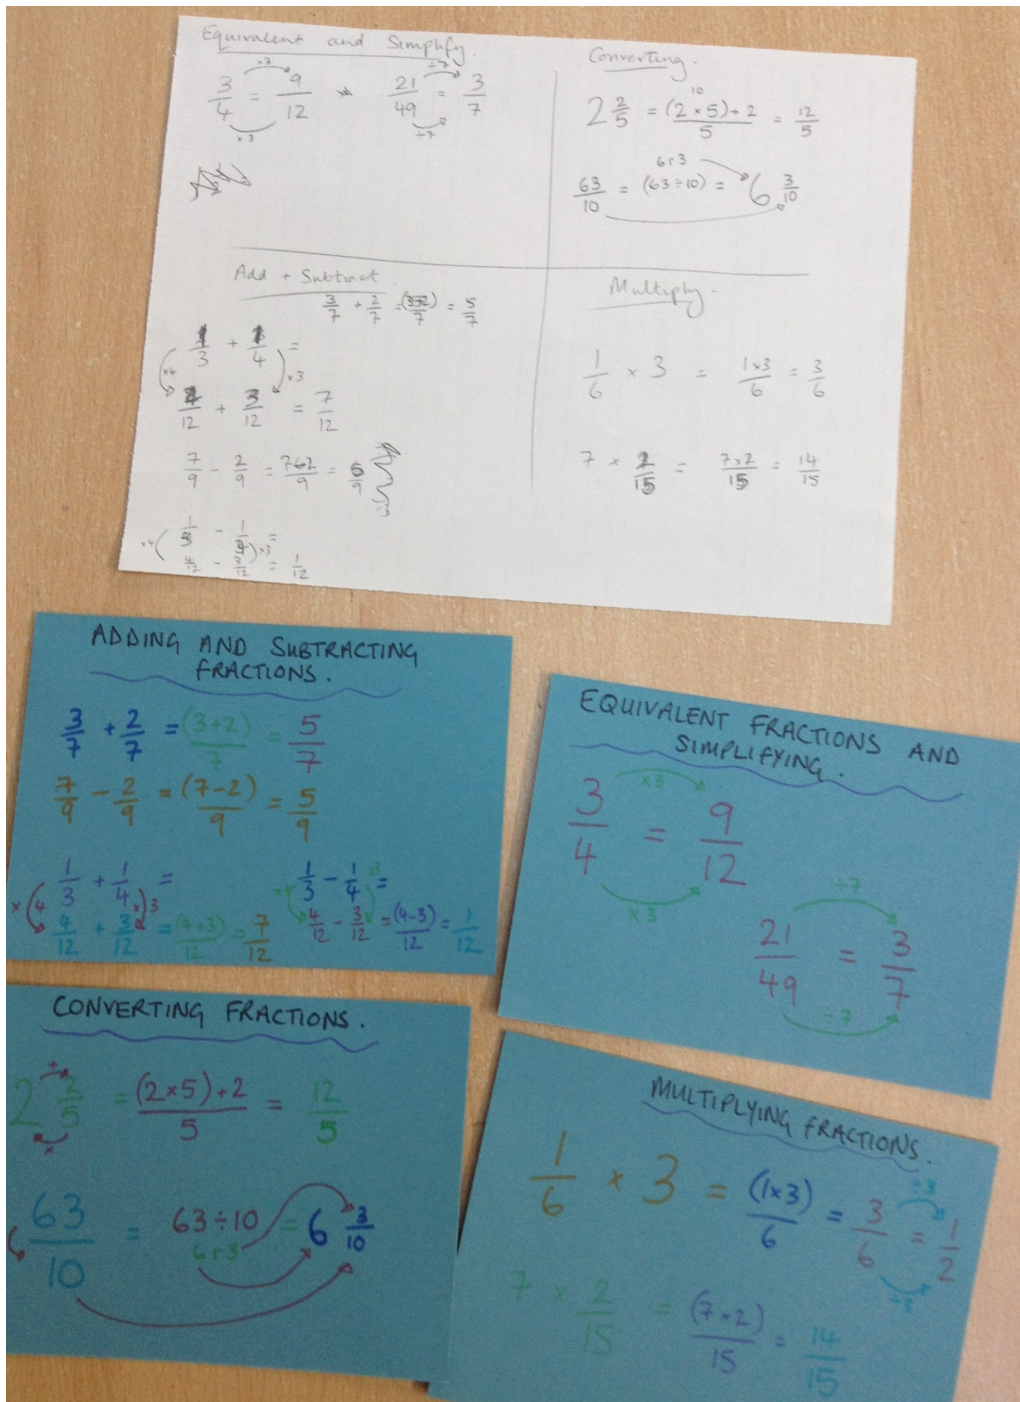 Equivalent and Simplify.
3/4 = 9/12
×3
21/49 = 3/7
÷7
÷7
Converting.
10
2 2/5 = (2 × 5) + 2 / 5 = 12/5
6 r 3
63/10 = (63 ÷ 10) = 6 3/10
Add + Subtract
3/7 + 2/7 = (3+2)/7 = 5/7
1/3 + 1/4 =
×4 ×3
4/12 + 3/12 = 7/12
7/9 - 2/9 = 7-2/9 = 5/9
1/3 - 1/4 =
×4 ×3
4/12 - 3/12 = 1/12
Multiply.
1/6 × 3 = 1×3/6 = 3/6
7 × 2/15 = 7×2/15 = 14/15
ADDING AND SUBTRACTING
FRACTIONS.
3/7 + 2/7 = (3+2)/7 = 5/7
7/9 - 2/9 = (7-2)/9 = 5/9
1/3 + 1/4 =
×4 ×3
4/12 + 3/12 = (4+3)/12 = 7/12
1/3 - 1/4 =
4/12 - 3/12 = (4-3)/12 = 1/12
EQUIVALENT FRACTIONS AND
SIMPLIFYING.
×3
3/4 = 9/12
×3
÷7
21/49 = 3/7
÷7
CONVERTING FRACTIONS.
+
2 2/5 = (2×5)+2/5 = 12/5
×
63/10 = 63÷10 = 6 3/10
6 r 3
MULTIPLYING FRACTIONS.
1/6 × 3 = (1×3)/6 = 3/6 = 1/2
÷3
÷3
7 × 2/15 = (7×2)/15 = 14/15